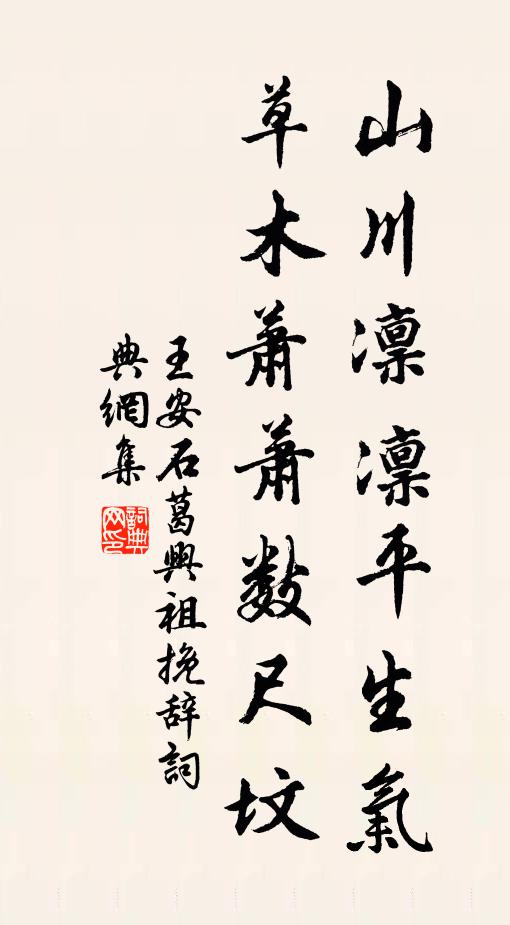 山川凛凛平生氣
草木蕭蕭數尺墳
王安石葛興祖挽辞詞
典網集
詞典网印